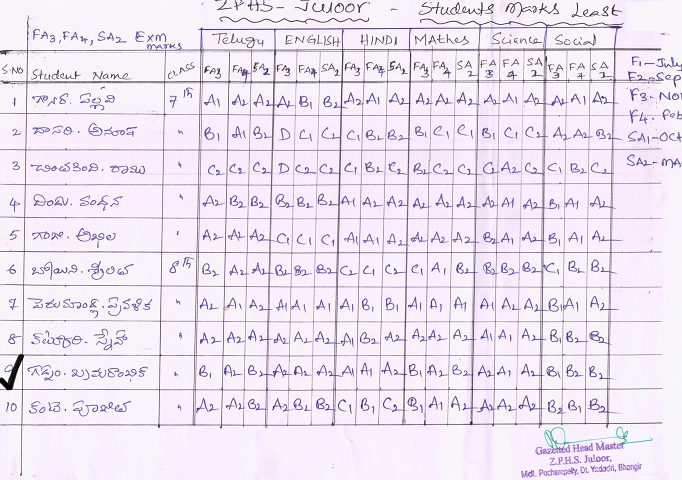 ZPHS- Juloor - Students Marks Least
FA3, FA4, SA2 Exm marks
Telugu ENGLISH HINDI MAthes Science Social
S.NO Student Name CLASS FA3 FA4 SA2 FA3 FA4 SA2 FA3 FA4 SA2 FM3 FA4 SA2 FA3 FA4 SA2 FA3 FA4 SA2
F1-July
F2-Sep
F3-Nov
F4. Feb
SA1-Oct
SA2-MA
1 పల్లవి 7th A1 A2 A2 A2 B1 B2 A2 A1 A2 A2 A2 A2 A2 A2 A2 A2 A1 A2
2 దాసరి. అనూష " B1 A1 B2 D C1 C2 C1 B2 B2 B1 C1 C1 B1 C1 C2 A2 A2 B2
3 రాజు " C2 C2 C2 D C2 C2 C1 B2 C2 B2 C2 C2 C2 A2 C2 C1 B2 C2
4 " A2 B2 B2 B2 B2 B2 A1 A2 A2 A2 A2 A2 A2 A1 A2 B1 A1 A2
5 అఖిల ' A2 A2 A2 C1 C1 C1 A1 A1 A2 A2 A2 A2 B2 A1 A2 B1 A1 A2
6 8th B2 A2 A2 B2 B2 B2 C2 C1 C2 C1 A1 B2 B2 B2 B2 C1 B2 B2
7 " A2 A1 A2 A1 A1 A1 A1 B1 B1 A1 A1 A1 A1 A2 A2 B1 A1 A2
8 " A2 A2 A2 A2 A2 A2 A1 B2 A2 A2 A2 A2 A1 A1 A2 B2 B2 B2
9 " B1 A2 B2 A2 A2 A2 A1 A1 A2 B1 A2 B2 A2 A1 A2 B1 B2 B2
10 పూజిత " A2 A2 B2 A2 B2 B2 C1 B1 C2 B1 A1 A2 A2 A2 A2 B2 B1 B2
Gazetted Head Master
Z.P.H.S. Juloor,
Mdl. Pochampally, Dt. Yadadri, Bhongir